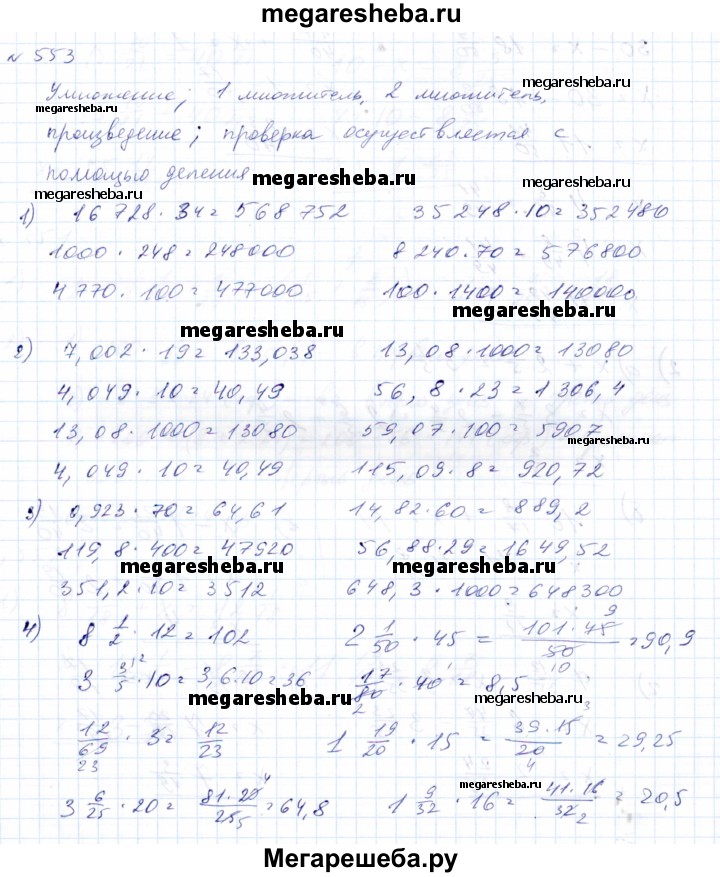 megaresheba.ru
№ 553
megaresheba.ru
Умножение; 1 множитель, 2 множитель,
megaresheba.ru
произведение; проверка осуществляется с
помощью деления
megaresheba.ru
megaresheba.ru
megaresheba.ru
1) 16 728 · 34 = 568 752 35 248 · 10 = 352 480
1000 · 248 = 248000 8 240 · 70 = 576800
4 770 · 100 = 477000 100 · 1400 = 140000
megaresheba.ru
megaresheba.ru
2) 7,002 · 19 = 133,038 13,08 · 1000 = 13080
4,049 · 10 = 40,49 56,8 · 23 = 1 306,4
13,08 · 1000 = 13080 59,07 · 100 = 5907
megaresheba.ru
4,049 · 10 = 40,49 115,09 · 8 = 920,72
3) 0,923 · 70 = 64,61 14,82 · 60 = 889,2
119,8 · 400 = 47920 56,88 · 29 = 1649,52
megaresheba.ru
megaresheba.ru
351,2 · 10 = 3512 648,3 · 1000 = 648300
4) 8 1/2 · 12 = 102 2 1/50 · 45 = 101 · 45/50 = 90,9
3 3/5 · 10 = 3,6 · 10 = 36 17/80 · 40 = 8,5
megaresheba.ru
12/69 · 3 = 12/23 1 19/20 · 15 = 39 · 15/20 = 29,25
megaresheba.ru
3 6/25 · 20 = 81 · 20/25 = 64,8 1 9/32 · 16 = 41 · 16/32 = 20,5
Мегарешеба.ру